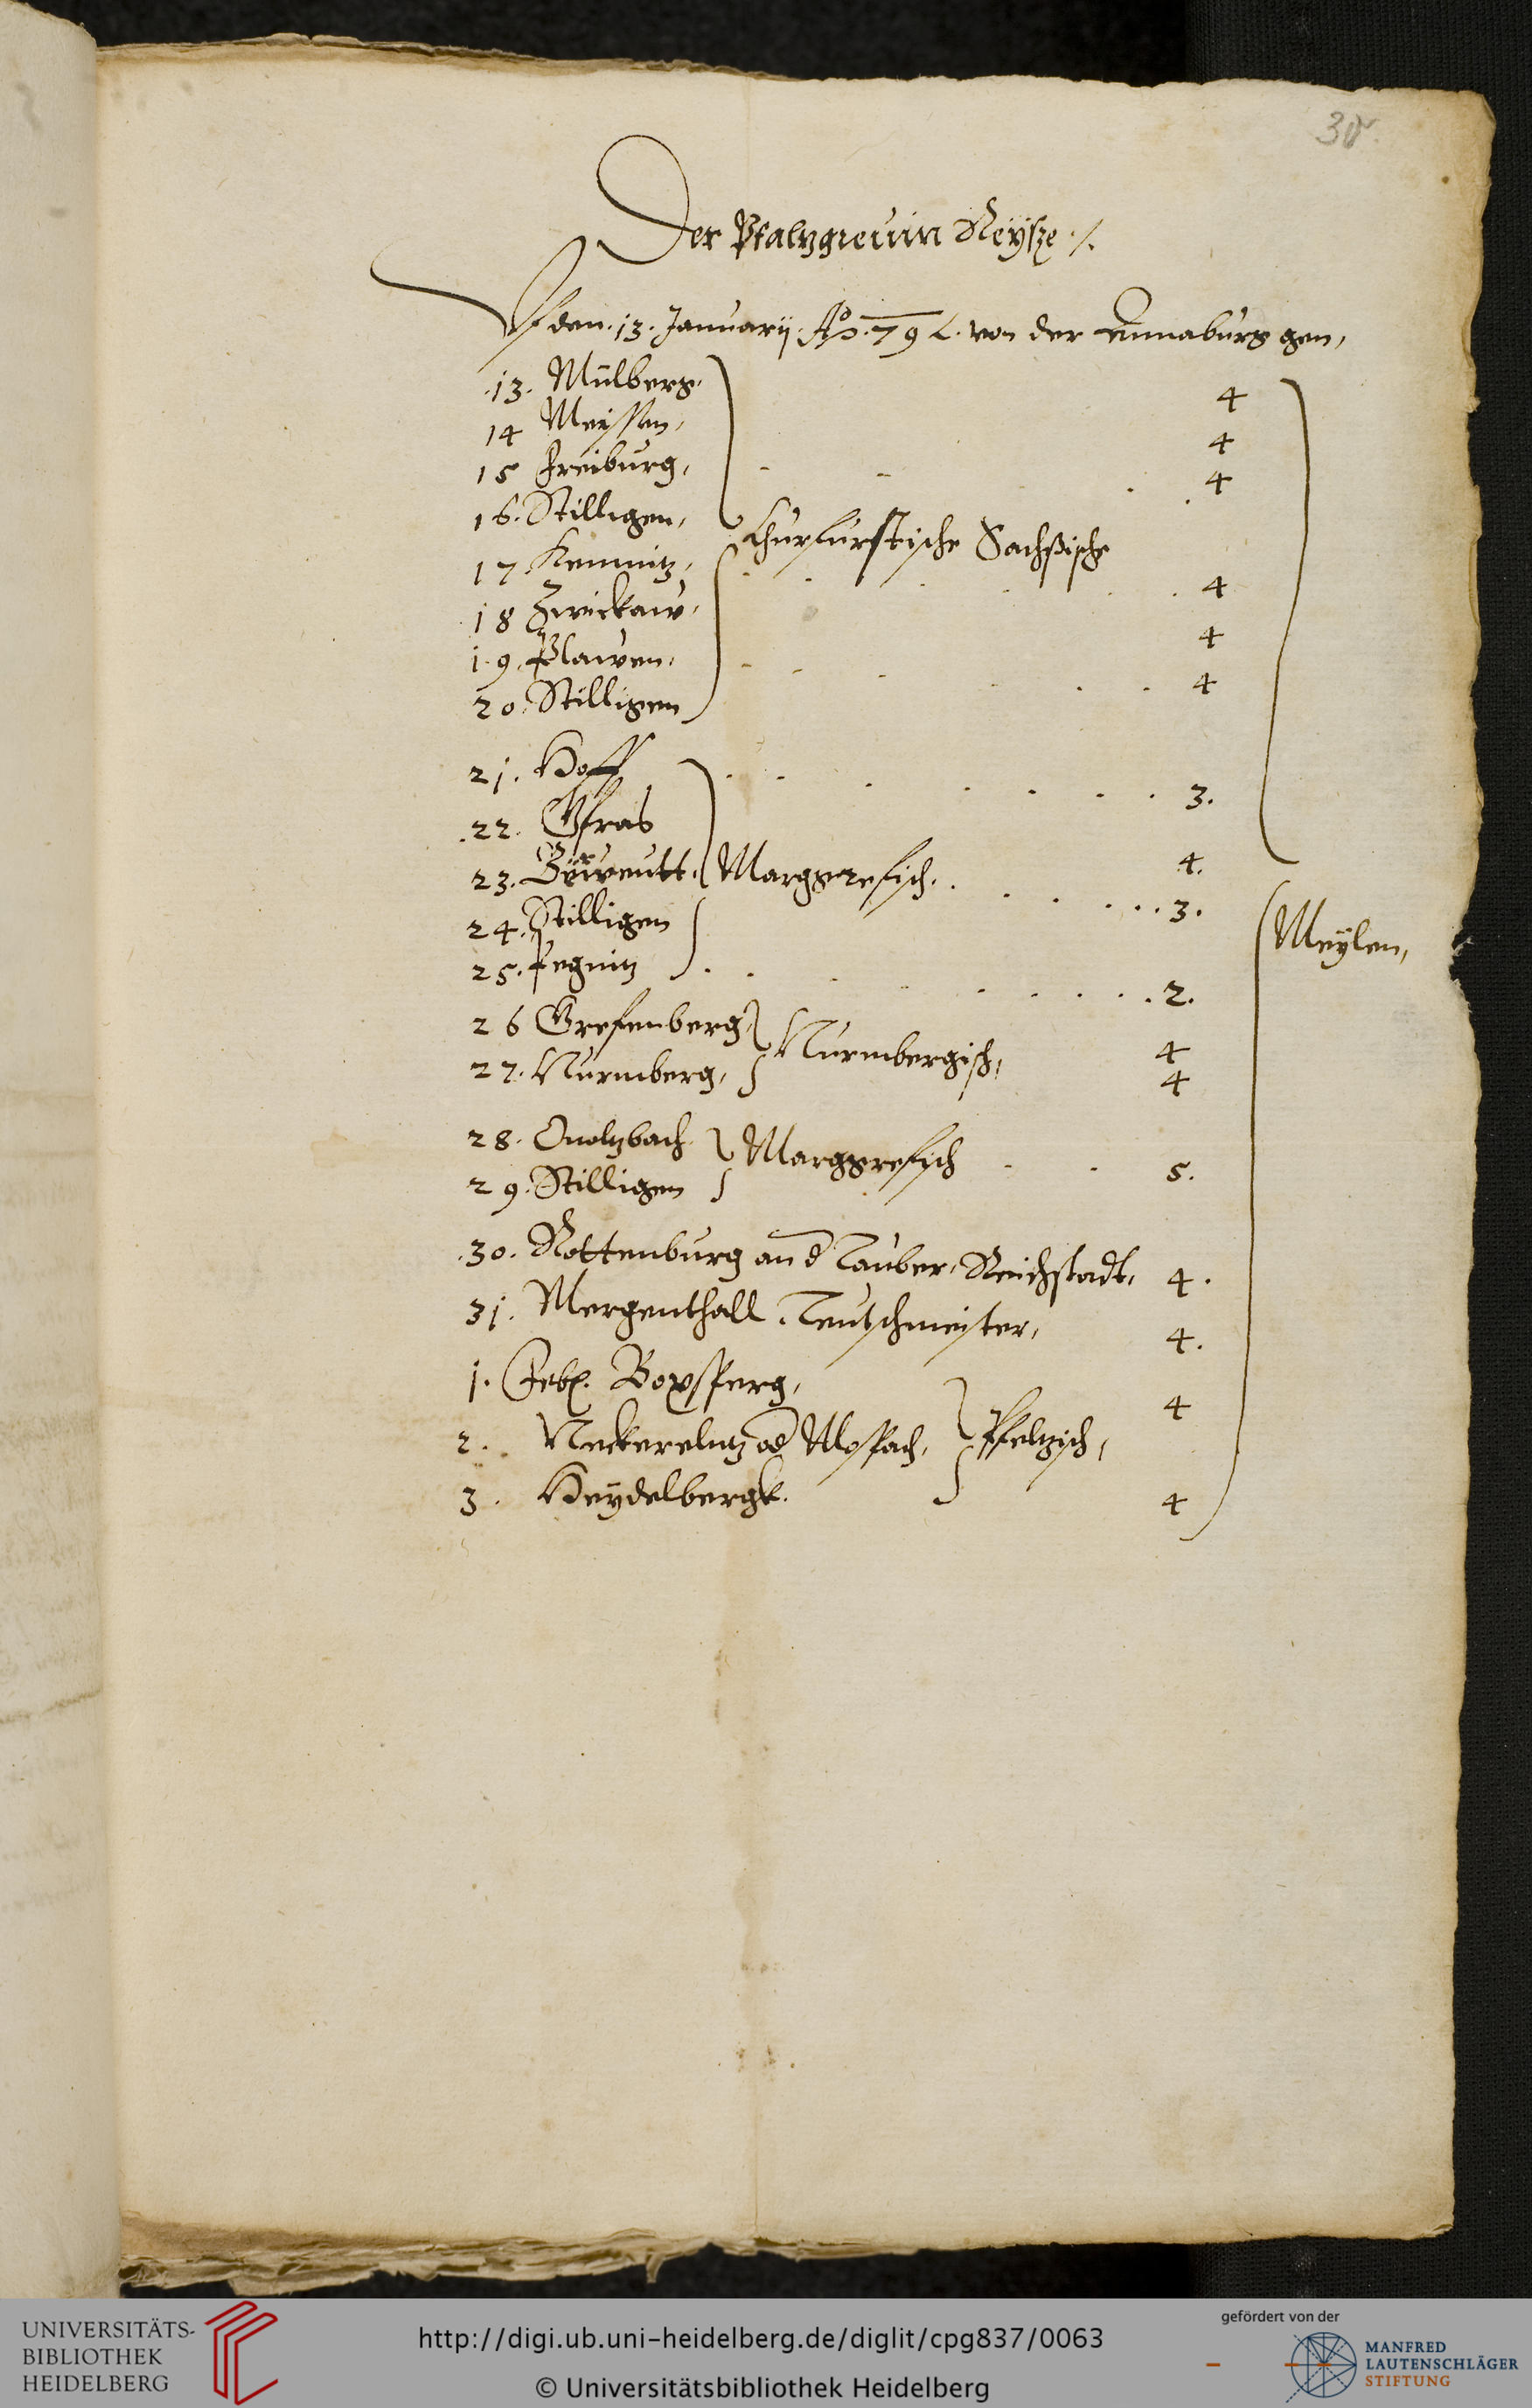 30r.
Der Pfaltzgrevin Reysze ./.
Uf den .13. Januarij. Ao. 79 L. von der Annaburg gen,
.13. Mülberg. 4
14 Meissen, 4
15 Freiburg, 4
16. Stilligen,
Churfürstische Sachsische
17 Kemnitz, 4
18 Zwickaw, 4
19. Plawen, 4
20. Stilligen
21. Hoff 3.
.22. Gfras 4.
23. Margгrefisch. 3.
24. Stilligen
25. Pegnitz 2.
Meylen,
26 Grefenberg, 4
Nürmbergisch,
27. Nürmberg, 4
28. Onoltzbach 5.
Marggrefisch
29. Stilligen
.30. Rottenburg an d Tauber, Reichstadt, 4.
31. Mergenthall. Teutschmeister, 4.
1. Feb. Boxsperg, 4
2. Neckereltz od Mospach,
Pfeltzisch,
3. Heydelbergk. 4
UNIVERSITÄTS-
BIBLIOTHEK
HEIDELBERG
http://digi.ub.uni-heidelberg.de/diglit/cpg837/0063
© Universitätsbibliothek Heidelberg
gefördert von der
MANFRED
LAUTENSCHLÄGER
STIFTUNG